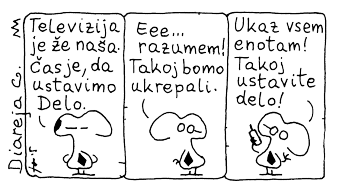 Diareja C.
Televizija
je že naša.
Čas je, da
ustavimo
Delo.
Eee...
razumem!
Takoj bomo
ukrepali.
Ukaz vsem
enotam!
Takoj
ustavite
delo!